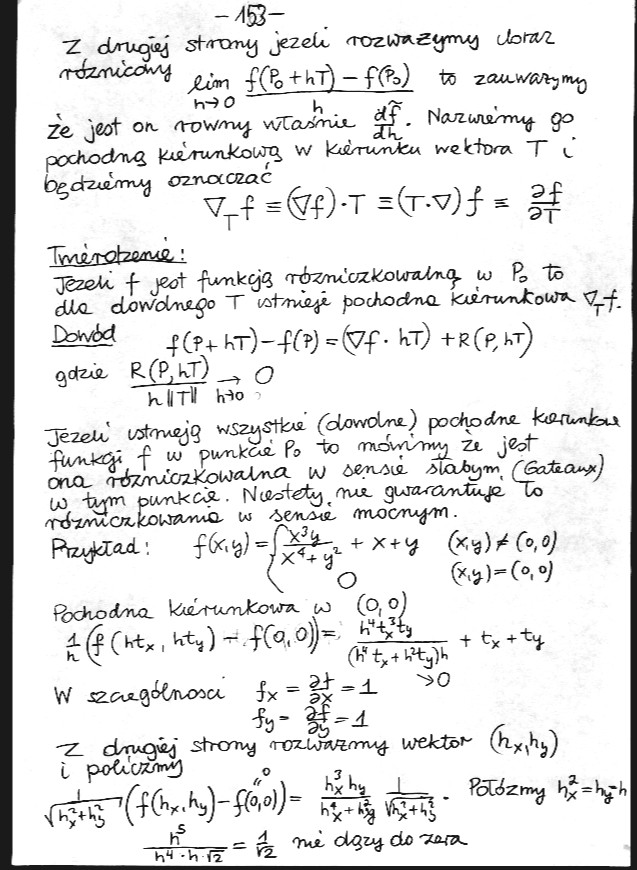 -153-
Z drugiej strony jeżeli rozważymy iloraz
różnicowy lim_{h→0} \frac{f(P_0+hT)-f(P_0)}{h} to zauważymy
że jest on równy właśnie \frac{d\tilde{f}}{dh}. Nazwiemy go
pochodną kierunkową w kierunku wektora T i
będziemy oznaczać
∇_T f ≡ (∇f)·T ≡ (T·∇)f ≡ \frac{∂f}{∂T}
Twierdzenie:
Jeżeli f jest funkcją różniczkowalną w P_0 to
dla dowolnego T istnieje pochodna kierunkowa ∇_T f.
Dowód f(P+hT)-f(P)=(∇f·hT)+R(P,hT)
gdzie \frac{R(P,hT)}{h‖T‖} →_{h→0} 0
Jeżeli istnieją wszystkie (dowolne) pochodne kierunkowe
funkcji f w punkcie P_0 to mówimy że jest
ona różniczkowalna w sensie słabym (Gateaux)
w tym punkcie. Niestety nie gwarantuje to
różniczkowania w sensie mocnym.
Przykład: f(x,y)={ \frac{x^3y}{x^4+y^2} + x+y (x,y)≠(0,0)
0 (x,y)=(0,0)
Pochodna kierunkowa w (0,0)
\frac{1}{h}(f(ht_x, ht_y) - f(0,0)) = \frac{h^4t_x^3t_y}{(h^4t_x+h^2t_y)h} + t_x+t_y
→0
W szczególności f_x = \frac{∂f}{∂x} = 1
f_y = \frac{∂f}{∂y} = 1
Z drugiej strony rozważmy wektor (h_x,h_y)
i policzmy
\frac{1}{\sqrt{h_x^2+h_y^2}}(f(h_x,h_y)-f(0,0)) = \frac{h_x^3h_y}{h_x^4+h_y^2} \frac{1}{\sqrt{h_x^2+h_y^2}}. Połóżmy h_x^2=h_y=h
"0
\frac{h^5}{h^4·h·\sqrt{2}} = \frac{1}{\sqrt{2}} nie dąży do zera